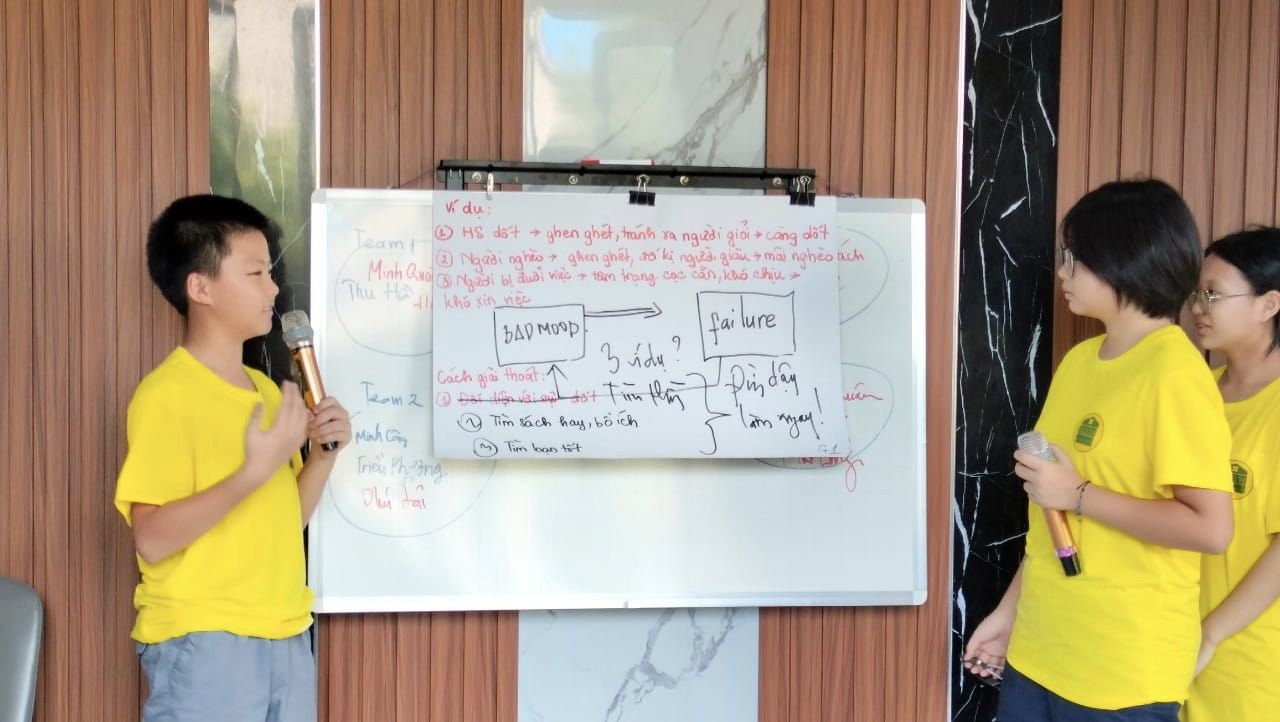 Ví dụ:
① HS dốt → ghen ghét, tránh xa người giỏi → càng dốt
② Người nghèo → ghen ghét, đố kị người giàu → mãi nghèo ách
③ Người bị đuổi việc → tâm trạng cọc cằn, khó chịu →
khó xin việc
BAD MOOD
failure
3 ví dụ?
Cách giải thoát:
① Đối diện với sự dốt
② Tìm sách hay, bổ ích
③ Tìm bạn tốt
Đứng dậy
làm ngay!
Team 1
Minh
Thu Hà
Team 2
Minh Công
Triều Phương